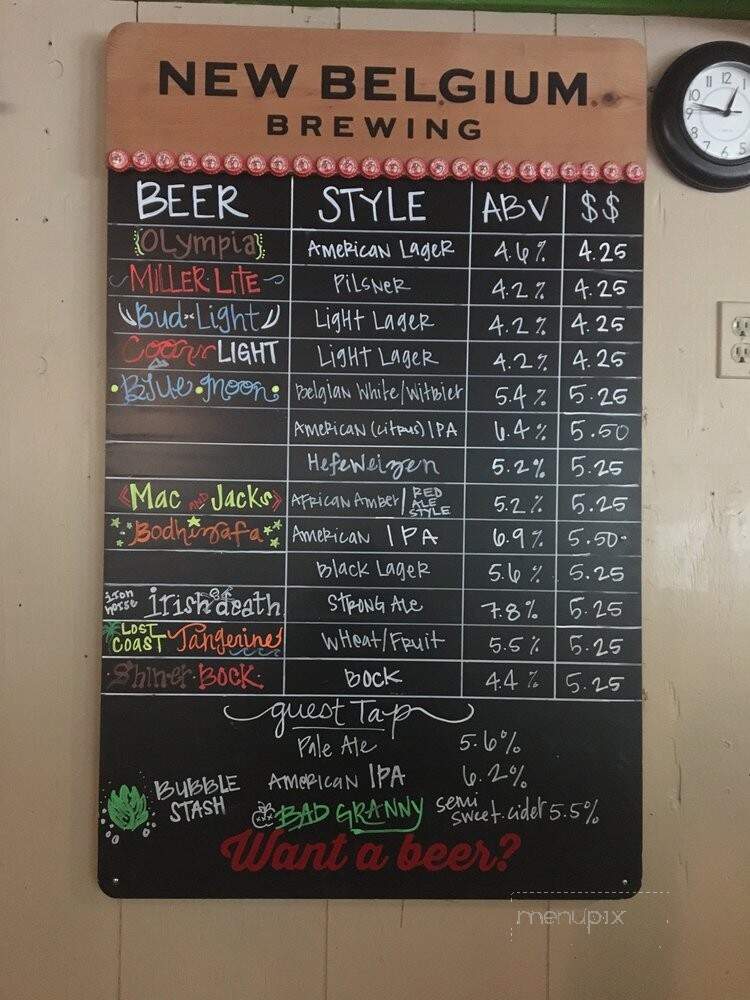 NEW BELGIUM
BREWING
BEER STYLE ABV $$
{OLympia} American Lager 4.6% 4.25
MILLER LITE Pilsner 4.2% 4.25
Bud Light Light Lager 4.2% 4.25
Coors LIGHT Light Lager 4.2% 4.25
BLUE MOON Belgian White/Witbier 5.4% 5.25
American (citrus) IPA 6.4% 5.50
Hefeweizen 5.2% 5.25
Mac AND Jacks African Amber/RED ALE STYLE 5.2% 5.25
Bodhizafa American IPA 6.9% 5.50
Black Lager 5.6% 5.25
iron horse irish death Strong Ale 7.8% 5.25
LOST COAST Tangerine Wheat/Fruit 5.5% 5.25
Shiner BOCK bock 4.4% 5.25
guest Tap
Pale Ale 5.6%
BUBBLE STASH American IPA 6.2%
BAD GRANNY semi sweet cider 5.5%
Want a beer?
menupix
10 11 12 1
9
8 7 6 5